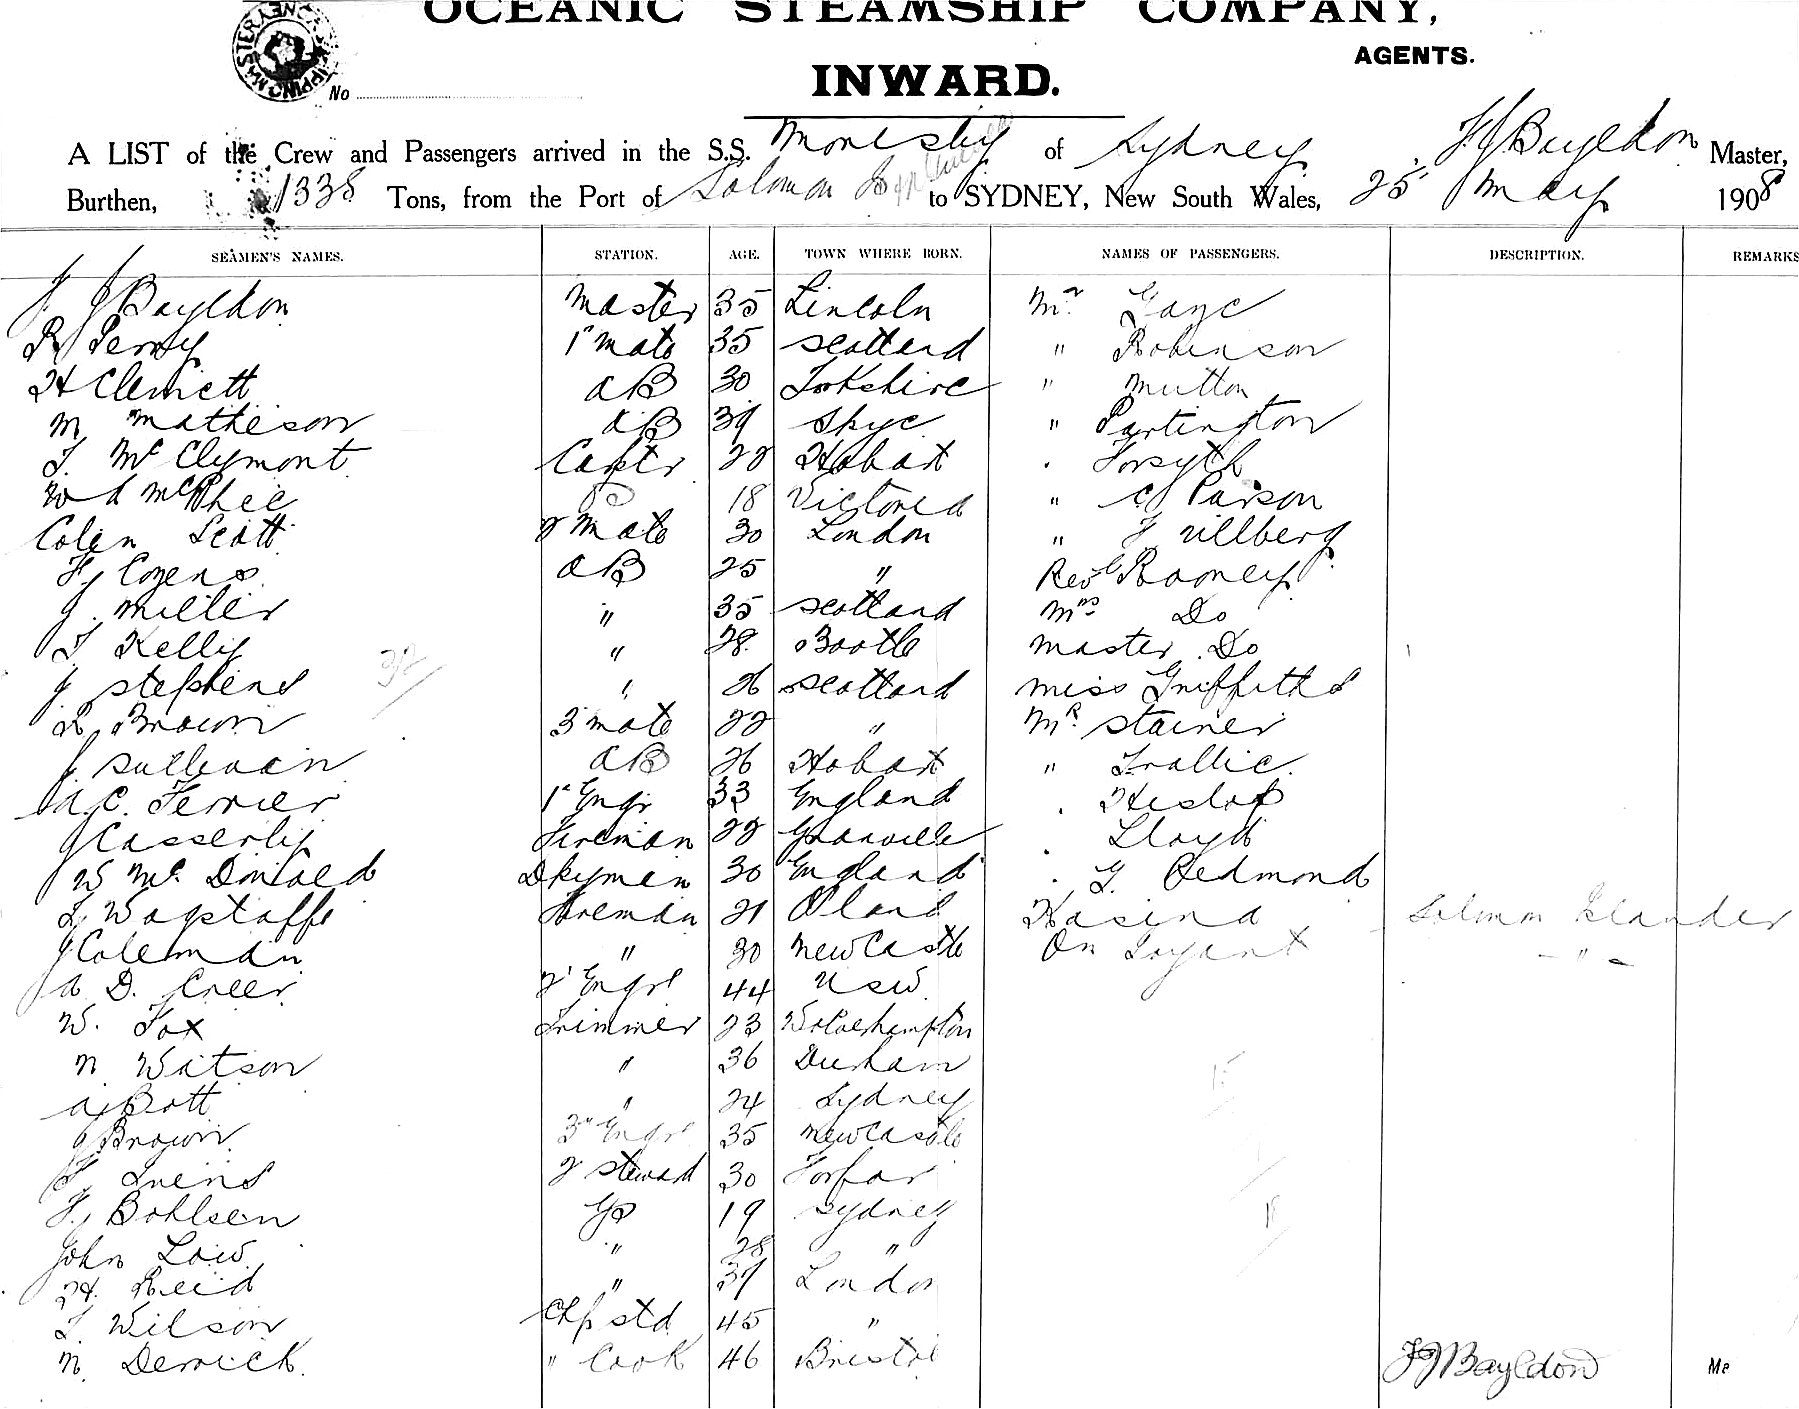 OCEANIC STEAMSHIP COMPANY,
AGENTS.
No
INWARD.
A LIST of the Crew and Passengers arrived in the S.S. Moresby of Sydney F J Bayldon Master,
Burthen, 1338 Tons, from the Port of Solomon to SYDNEY, New South Wales, 25 May 1908
SEAMEN'S NAMES. STATION. AGE. TOWN WHERE BORN. NAMES OF PASSENGERS. DESCRIPTION. REMARKS
F J Bayldon Master 35 Lincoln Mr Gaye
R Perry 1st mate 35 Scotland " Robinson
H Clemett AB 30 Yorkshire " Mutton
M Matheson AB 39 Skye " Partington
T McClymont Carptr 22 Hobart . Forsyth
W A McPhee 18 Victoria " C Parson
Colin Scott 2 Mate 30 London " F Ullberg
F Cozens AB 25 " Revd Rooney
J Miller " 35 Scotland Mrs Do
T Kelly " 28 Bootle Master Do
J Stephens " 26 Scotland Miss Griffiths
R Brown 3 mate 22 " Mr Stainer
J Sullivan AB 26 Hobart "
A.C. Ferrier 1st Engr 33 England . Heslop
J Casserly Fireman 22 Granville . Lloyd
W McDonald Dkyman 30 England . G. Redmond
L Wagstaffe Fireman 21 Kasina Solomon Islander
J Coleman " 30 Newcastle On - " -
A D. Creer 2 Engr 44 NSW.
W. Fox Trimmer 23 Wolverhampton
N Watson " 36 Durham
A Bott " 24 Sydney
J Brown 3rd Engr 35 Newcastle
F 2 Steward 30 Forfar
F. Bohlsen GS 19 Sydney
John Low " 28 "
H. Reid " 37 London
T. Wilson Chf std 45 "
N. Derrick " Cook 46 Bristol
F J Bayldon